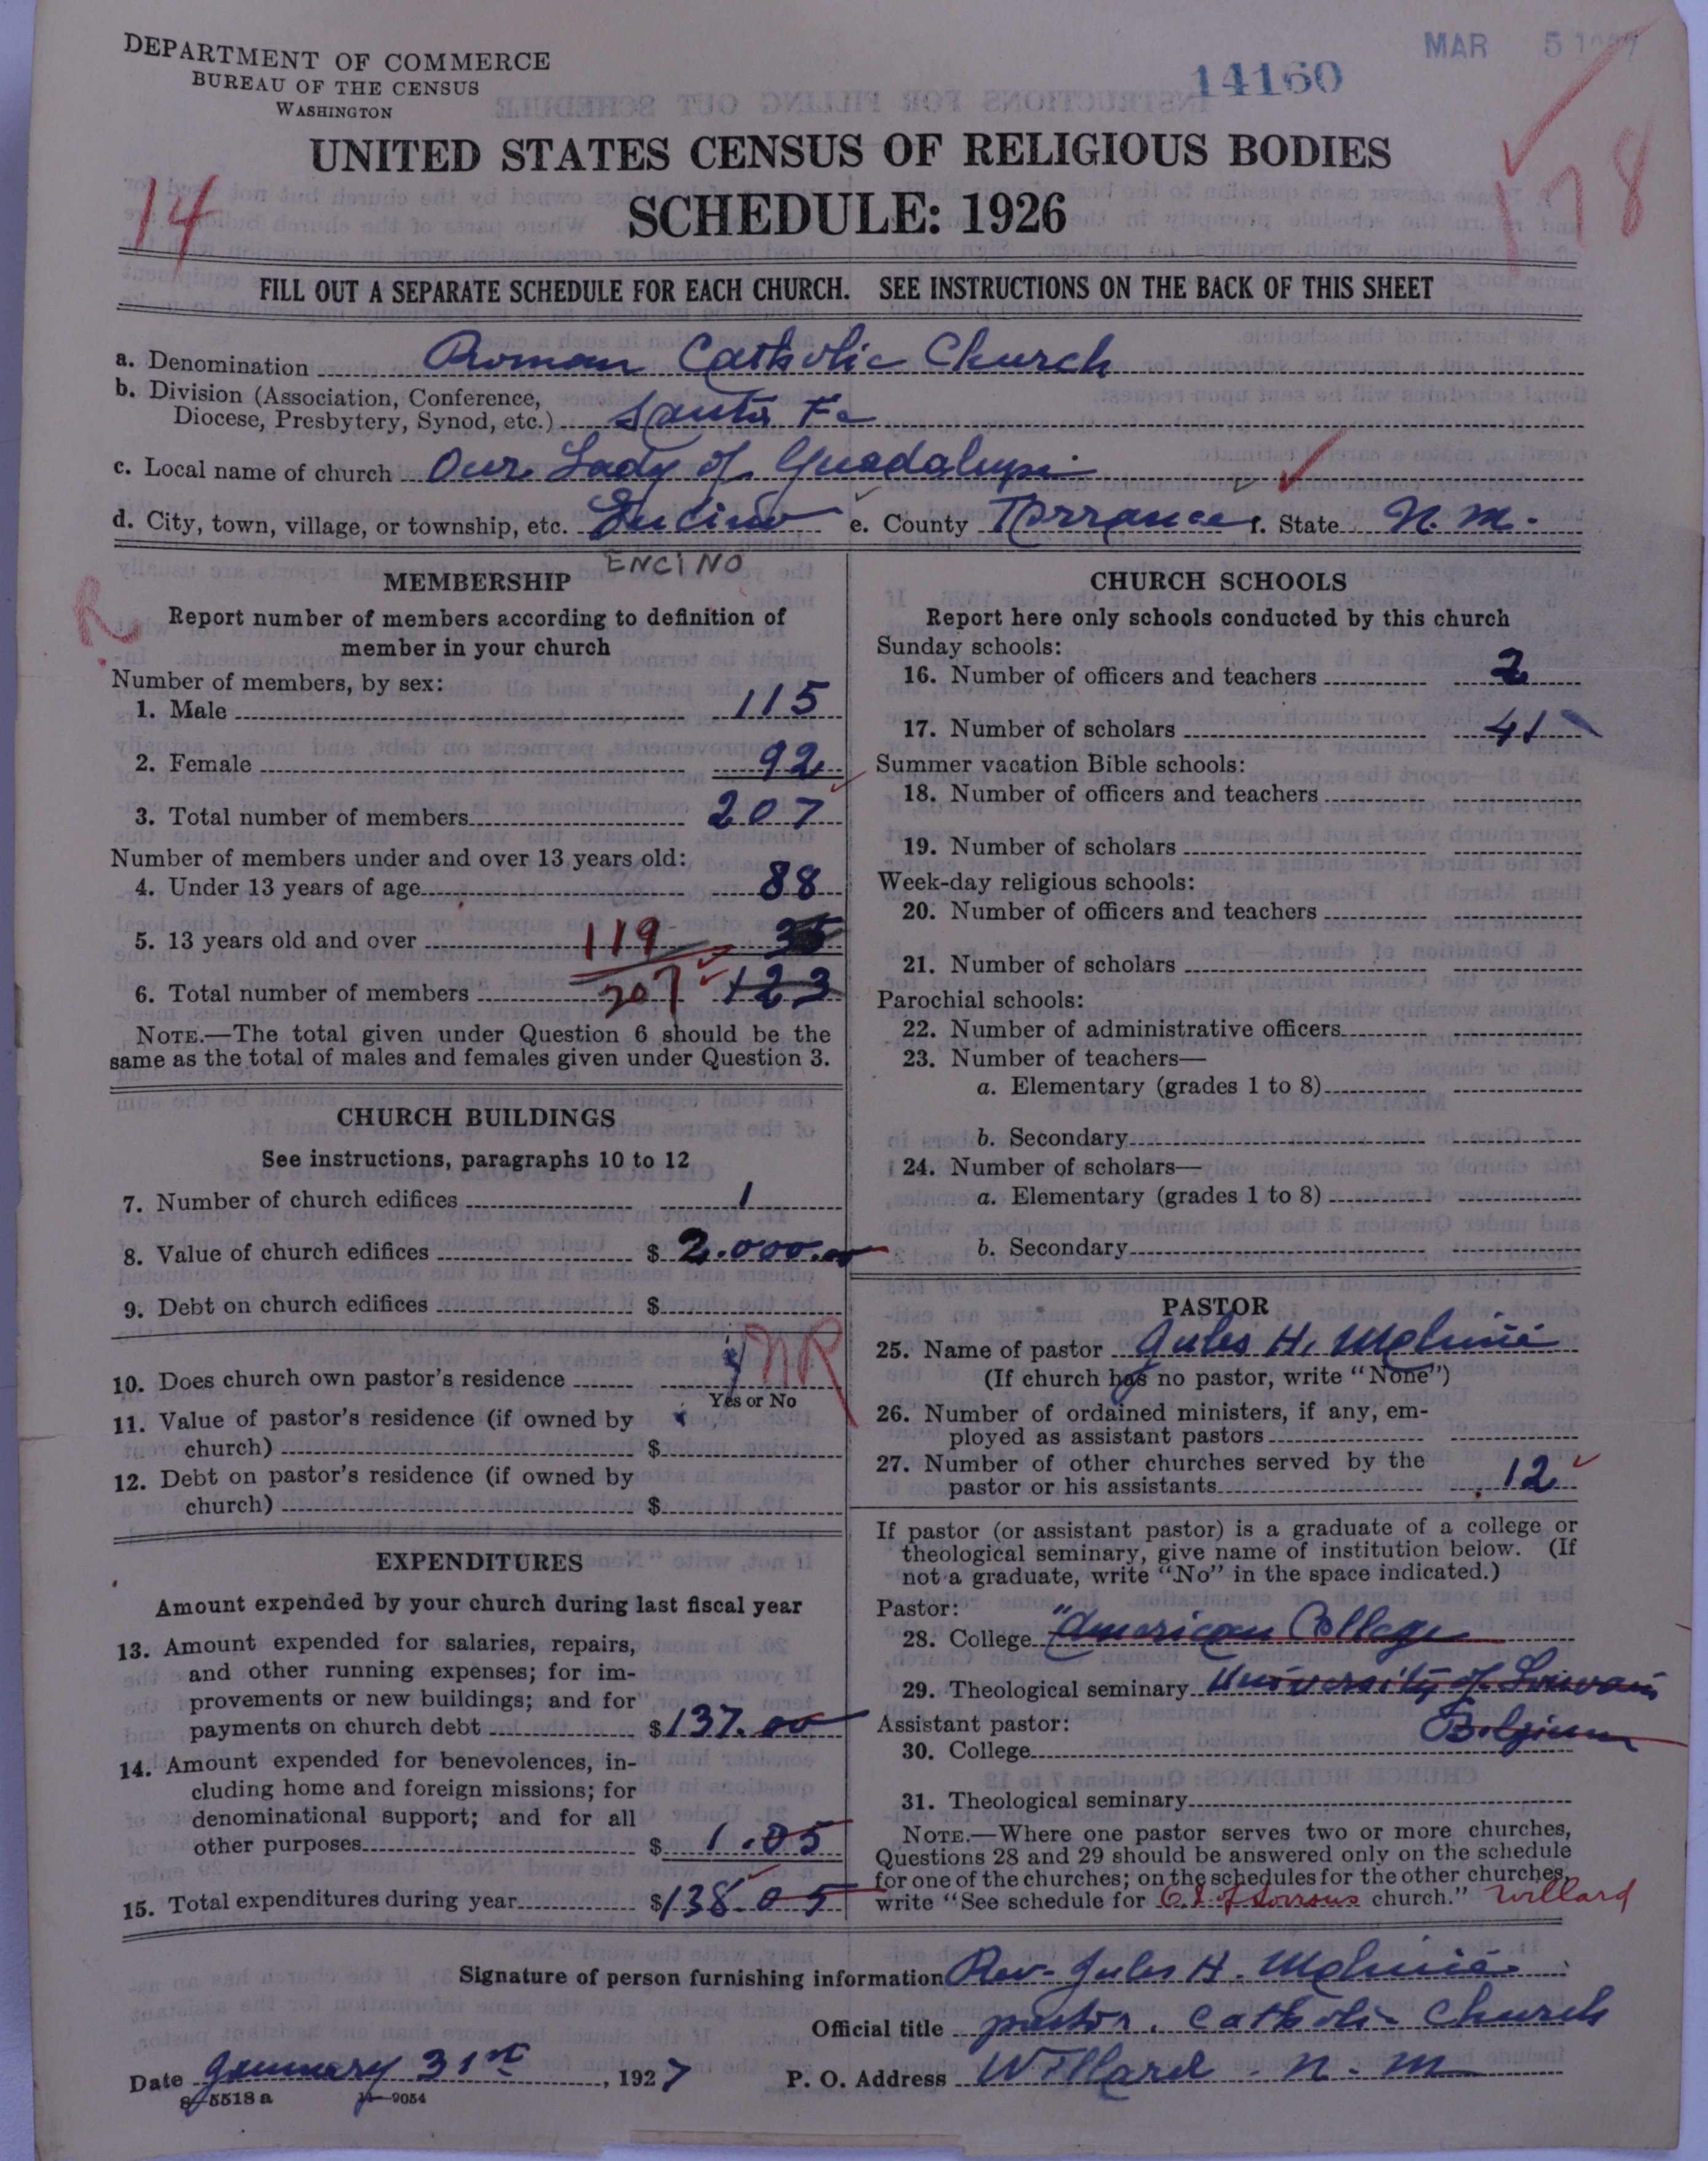 DEPARTMENT OF COMMERCE
BUREAU OF THE CENSUS
WASHINGTON
14160
MAR 5
UNITED STATES CENSUS OF RELIGIOUS BODIES
SCHEDULE: 1926
14
178
FILL OUT A SEPARATE SCHEDULE FOR EACH CHURCH. SEE INSTRUCTIONS ON THE BACK OF THIS SHEET
a. Denomination Roman Catholic Church
b. Division (Association, Conference,
Diocese, Presbytery, Synod, etc.) Santa Fe
c. Local name of church Our Lady of Guadalupe
d. City, town, village, or township, etc. Encino e. County Torrance f. State N. M.
ENCINO
R
MEMBERSHIP
Report number of members according to definition of
member in your church
Number of members, by sex:
1. Male 115
2. Female 92
3. Total number of members 207
Number of members under and over 13 years old:
4. Under 13 years of age 88
5. 13 years old and over 119 35
6. Total number of members 207 123
NOTE.—The total given under Question 6 should be the
same as the total of males and females given under Question 3.
CHURCH BUILDINGS
See instructions, paragraphs 10 to 12
7. Number of church edifices 1
8. Value of church edifices $ 2.000.00
9. Debt on church edifices $
10. Does church own pastor's residence NR
Yes or No
11. Value of pastor's residence (if owned by
church) $
12. Debt on pastor's residence (if owned by
church) $
EXPENDITURES
Amount expended by your church during last fiscal year
13. Amount expended for salaries, repairs,
and other running expenses; for im-
provements or new buildings; and for
payments on church debt $137.00
14. Amount expended for benevolences, in-
cluding home and foreign missions; for
denominational support; and for all
other purposes $ 1.05
15. Total expenditures during year $138.05
CHURCH SCHOOLS
Report here only schools conducted by this church
Sunday schools:
16. Number of officers and teachers 2
17. Number of scholars 41
Summer vacation Bible schools:
18. Number of officers and teachers
19. Number of scholars
Week-day religious schools:
20. Number of officers and teachers
21. Number of scholars
Parochial schools:
22. Number of administrative officers
23. Number of teachers—
a. Elementary (grades 1 to 8)
b. Secondary
24. Number of scholars—
a. Elementary (grades 1 to 8)
b. Secondary
PASTOR
25. Name of pastor Jules H. Molinié
(If church has no pastor, write "None")
26. Number of ordained ministers, if any, em-
ployed as assistant pastors
27. Number of other churches served by the
pastor or his assistants 12
If pastor (or assistant pastor) is a graduate of a college or
theological seminary, give name of institution below. (If
not a graduate, write "No" in the space indicated.)
Pastor:
28. College "American College
29. Theological seminary University of Louvain
Belgium
Assistant pastor:
30. College
31. Theological seminary
NOTE.—Where one pastor serves two or more churches,
Questions 28 and 29 should be answered only on the schedule
for one of the churches; on the schedules for the other churches,
write "See schedule for O.L. of Sorrows church." Willard
Signature of person furnishing information Rev. Jules H. Molinié
Official title pastor. Catholic Church
Date January 31st, 1927 P. O. Address Willard. N. M
8-5518a 11-9054